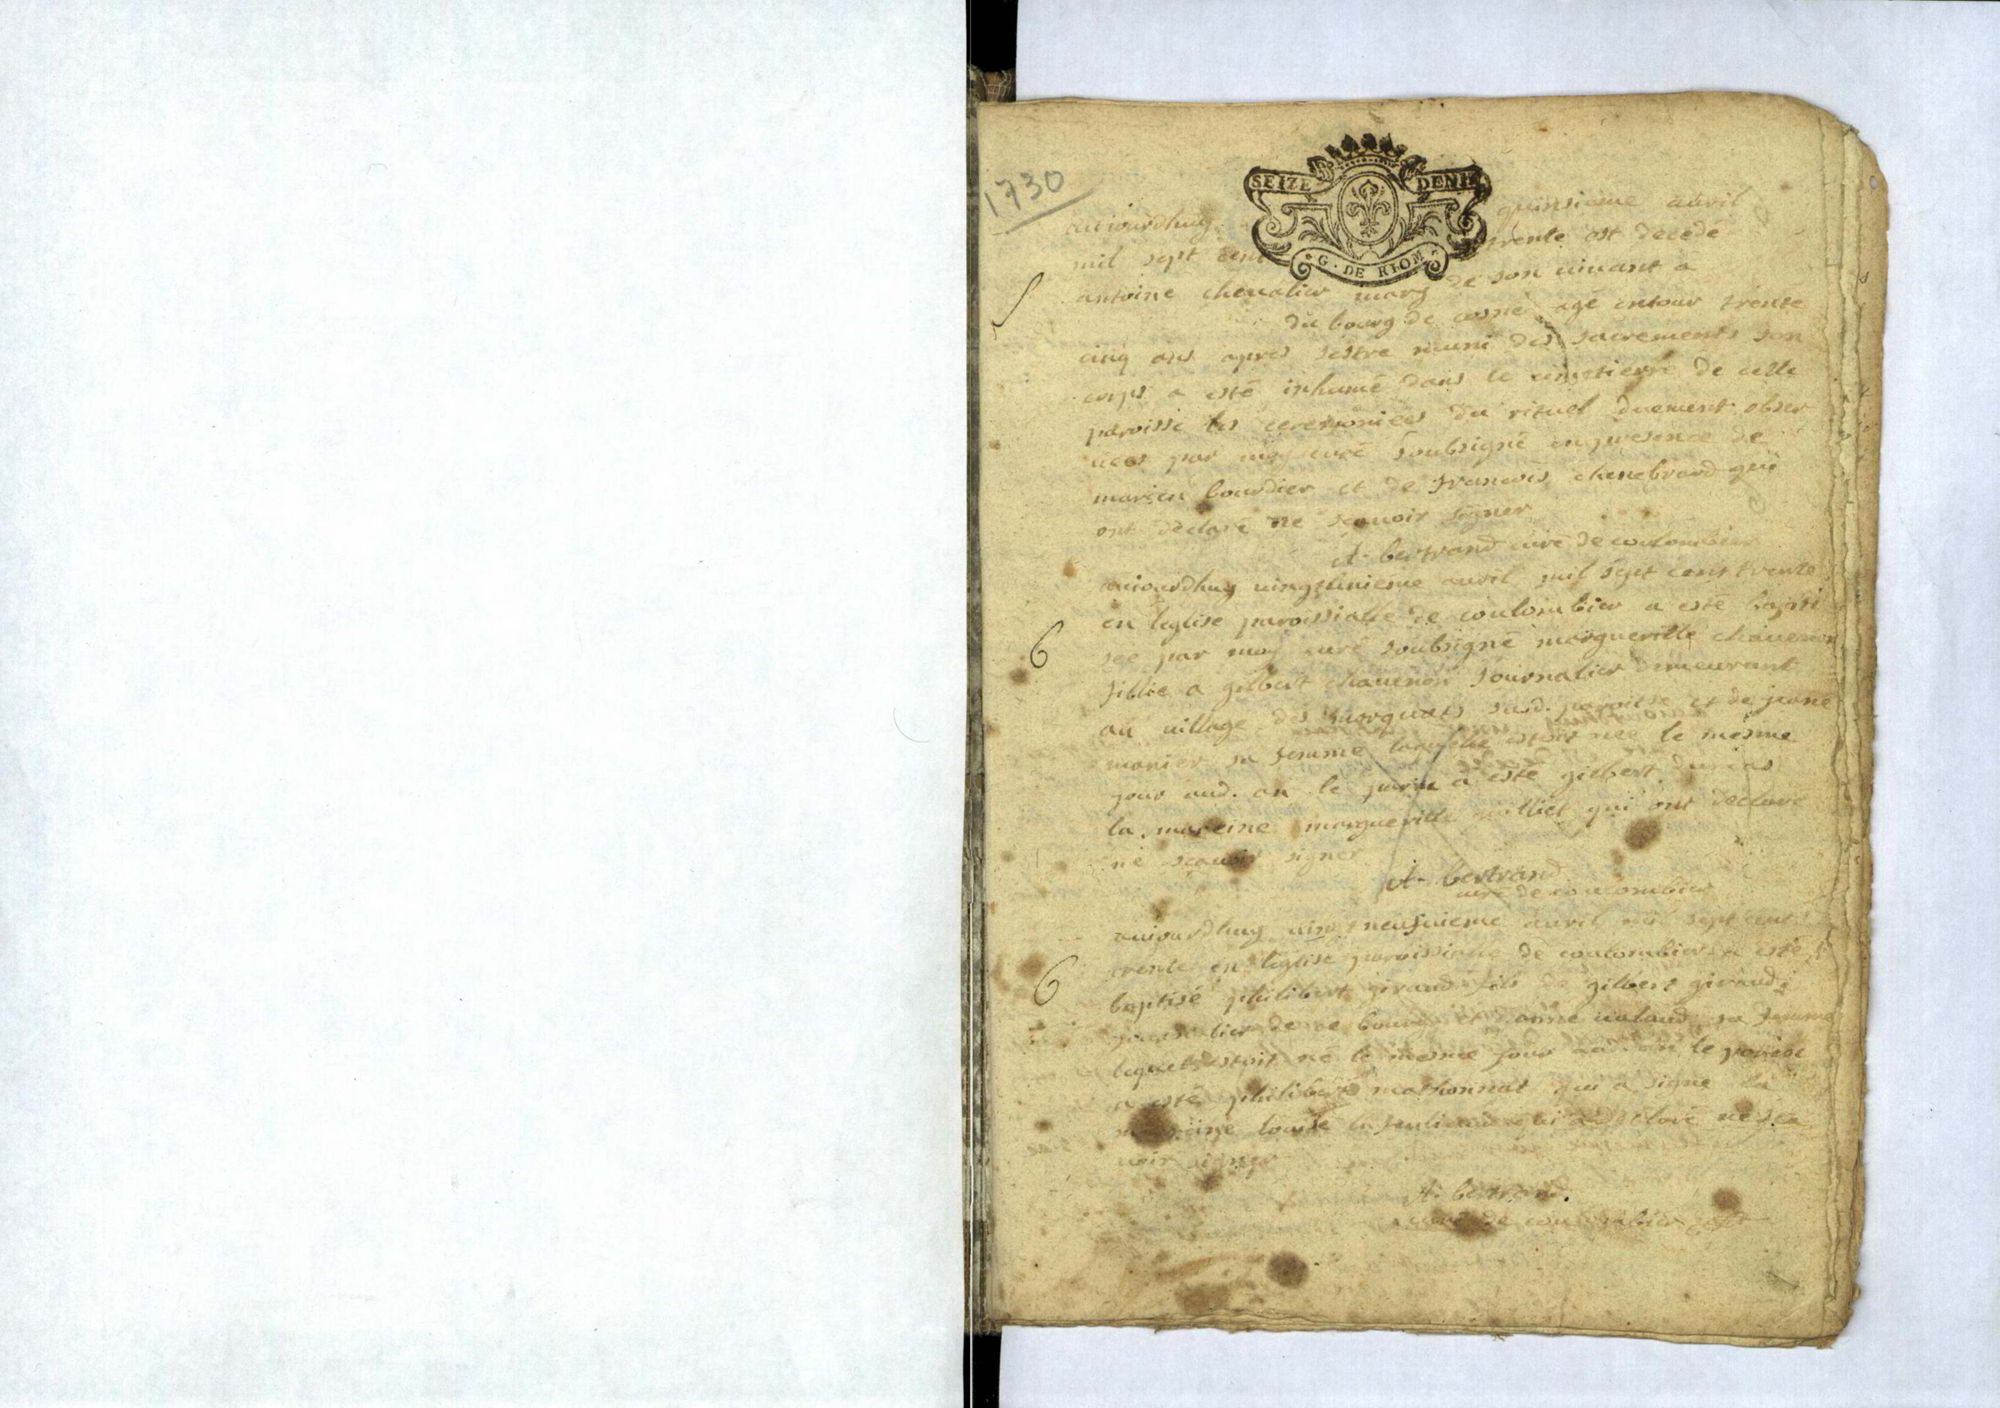 1730
SEIZE DENIE
G. DE RIOM
aujourdhuy quinsieme avril
mil sept cent trente est decedé
antoine chevalier de son vivant a
du bourg de cosne agé entour trente
cinq ans apres sestre muni des sacrements son
corps a esté inhumé dans le cimetierre de cette
paroisse les ceremonies du rituel duement obser
vées par moy curé soubsigné en presence de
marien bourdier et de francois chenebrard qui
ont declaré ne sçavoir signer
A. bertrand curé de coulombier
aujourdhuy vingtunieme avril mil sept cent trente
6
en leglise paroissialle de coulombier a esté bapti
sée par moy curé soubsigné margueritte chavenon
fillie a gilbert chavenon journalier demeurant
au village des susd. paroisse et de jeane
monier sa femme laquelle estoit née le mesme
jour aud. an le parin a esté gilbert durias
la mareine margueritte qui ont declaré
ne sçavoir signer
A. bertrand
curé de coulombier
aujourdhuy vingtneufvieme avril mil sept cent
6
trente en leglise paroissialle de coulombier a esté
baptisé philibert giraud fils de gilbert giraud
journalier de ce bourg et anne sa femme
lequel estoit né le mesme jour aud. an le parein
a esté philibert mathonnat qui a signé la
mareine louise qui a declaré ne sça
voir signer
A. bertrand.
curé de coulombier